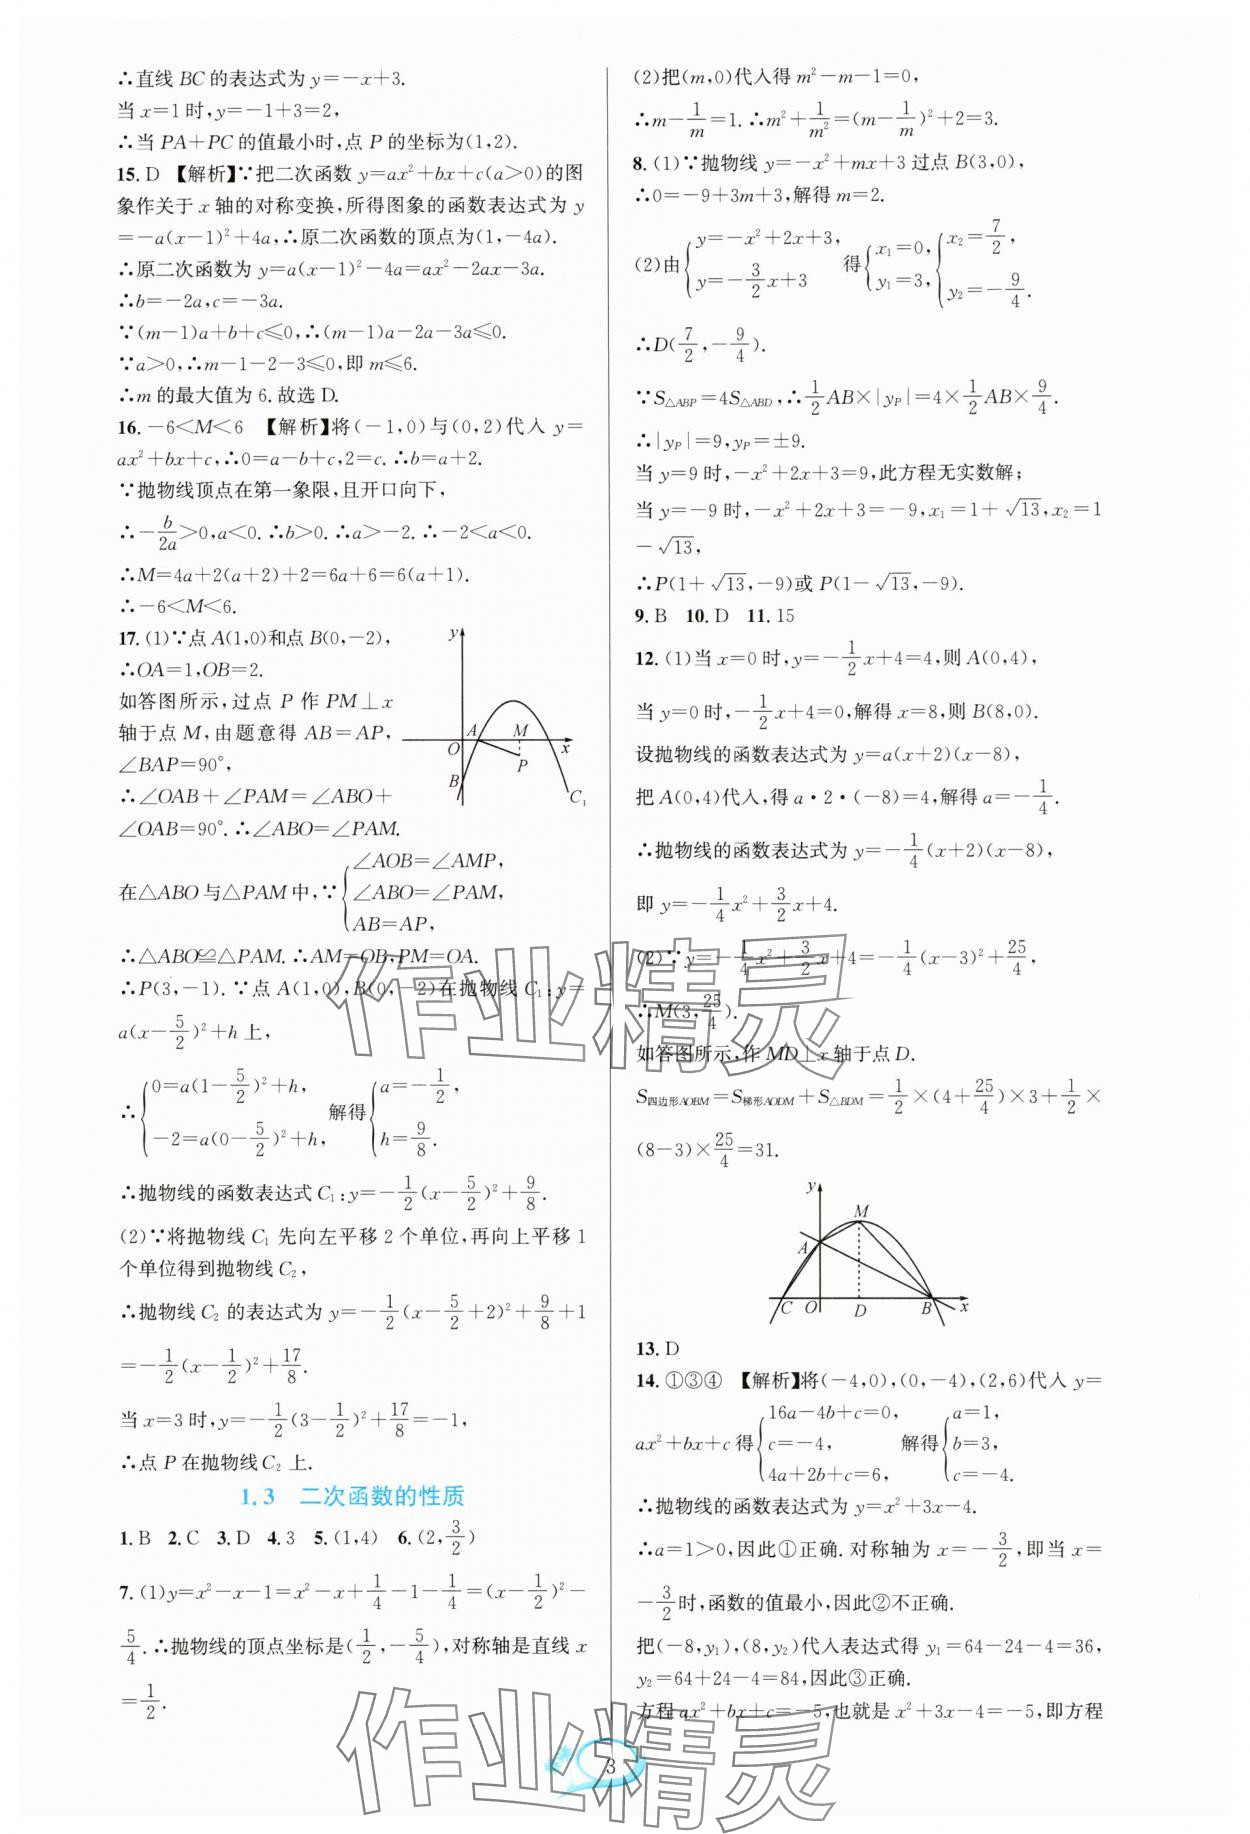 ∴直线 BC 的表达式为 y=－x+3.
当 x=1 时,y=－1+3=2,
∴当 PA+PC 的值最小时,点 P 的坐标为(1,2).
15. D 【解析】∵把二次函数 y=ax²+bx+c(a>0)的图
象作关于 x 轴的对称变换,所得图象的函数表达式为 y
=－a(x－1)²+4a,∴原二次函数的顶点为(1,－4a).
∴原二次函数为 y=a(x－1)²－4a=ax²－2ax－3a.
∴b=－2a,c=－3a.
∵(m－1)a+b+c≤0,∴(m－1)a－2a－3a≤0.
∵a>0,∴m－1－2－3≤0,即 m≤6.
∴m 的最大值为 6.故选 D.
16. －6<M<6 【解析】将(－1,0)与(0,2)代入 y=
ax²+bx+c,∴0=a－b+c,2=c.∴b=a+2.
∵抛物线顶点在第一象限,且开口向下,
∴－b/2a>0,a<0.∴b>0.∴a>－2.∴－2<a<0.
∴M=4a+2(a+2)+2=6a+6=6(a+1).
∴－6<M<6.
17. (1)∵点 A(1,0)和点 B(0,－2),
∴OA=1,OB=2.
如答图所示,过点 P 作 PM⊥x
轴于点 M,由题意得 AB=AP,
∠BAP=90°,
∴∠OAB+∠PAM=∠ABO+
∠OAB=90°.∴∠ABO=∠PAM.
y
A M
O x
P
B
C₁
在△ABO 与△PAM 中,∵{∠AOB=∠AMP,
∠ABO=∠PAM,
AB=AP,
∴△ABO≌△PAM.∴AM=OB,PM=OA.
∴P(3,－1).∵点 A(1,0),B(0,－2)在抛物线 C₁:y=
a(x－5/2)²+h 上,
∴{0=a(1－5/2)²+h, －2=a(0－5/2)²+h, 解得{a=－1/2, h=9/8.
∴抛物线的函数表达式 C₁:y=－1/2(x－5/2)²+9/8.
(2)∵将抛物线 C₁ 先向左平移 2 个单位,再向上平移 1
个单位得到抛物线 C₂,
∴抛物线 C₂ 的表达式为 y=－1/2(x－5/2+2)²+9/8+1
=－1/2(x－1/2)²+17/8.
当 x=3 时,y=－1/2(3－1/2)²+17/8=－1,
∴点 P 在抛物线C₂ 上.
1.3 二次函数的性质
1. B 2. C 3. D 4. 3 5. (1,4) 6. (2,3/2)
7. (1)y=x²－x－1=x²－x+1/4－1－1/4=(x－1/2)²－
5/4.∴抛物线的顶点坐标是(1/2,－5/4),对称轴是直线 x
=1/2.
(2)把(m,0)代入得 m²－m－1=0,
∴m－1/m=1.∴m²+1/m²=(m－1/m)²+2=3.
8. (1)∵抛物线 y=－x²+mx+3 过点 B(3,0),
∴0=－9+3m+3,解得 m=2.
(2)由{y=－x²+2x+3, y=－3/2x+3 得{x₁=0, y₁=3, {x₂=7/2, y₂=－9/4.
∴D(7/2,－9/4).
∵S△ABP=4S△ABD,∴1/2AB×|yP|=4×1/2AB×9/4.
∴|yP|=9,yP=±9.
当 y=9 时,－x²+2x+3=9,此方程无实数解;
当 y=－9 时,－x²+2x+3=－9,x₁=1+√13,x₂=1
－√13,
∴P(1+√13,－9)或 P(1－√13,－9).
9. B 10. D 11. 15
12. (1)当 x=0 时,y=－1/2x+4=4,则 A(0,4),
当 y=0 时,－1/2x+4=0,解得 x=8,则 B(8,0).
设抛物线的函数表达式为 y=a(x+2)(x－8),
把 A(0,4)代入,得 a·2·(－8)=4,解得 a=－1/4.
∴抛物线的函数表达式为 y=－1/4(x+2)(x－8),
即 y=－1/4x²+3/2x+4.
(2)∵y=－1/4x²+3/2x+4=－1/4(x－3)²+25/4,
∴M(3,25/4).
如答图所示,作 MD⊥x 轴于点 D.
S四边形AOBM=S梯形AODM+S△BDM=1/2×(4+25/4)×3+1/2×
(8－3)×25/4=31.
y
M
A
C O D B x
13. D
14. ①③④ 【解析】将(－4,0),(0,－4),(2,6)代入 y=
ax²+bx+c 得{16a－4b+c=0, c=－4, 4a+2b+c=6, 解得{a=1, b=3, c=－4.
∴抛物线的函数表达式为 y=x²+3x－4.
∴a=1>0,因此①正确.对称轴为 x=－3/2,即当 x=
－3/2时,函数的值最小,因此②不正确.
把(－8,y₁),(8,y₂)代入表达式得 y₁=64－24－4=36,
y₂=64+24－4=84,因此③正确.
方程 ax²+bx+c=－5,也就是 x²+3x－4=－5,即方程
3
作业精灵
作业精灵